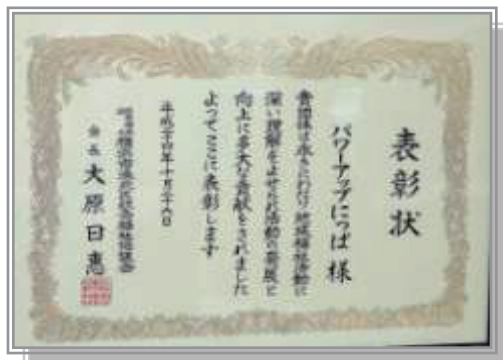 表彰状
パワーアップにっぱ 様
貴団体は永きにわたり地域福祉活動に
深い理解をよせられ活動の発展と
向上に多大な貢献をされました
よってここに表彰します
平成二十四年十月二十六日
横浜市港北区社会福祉協議会
会長 大原日恵